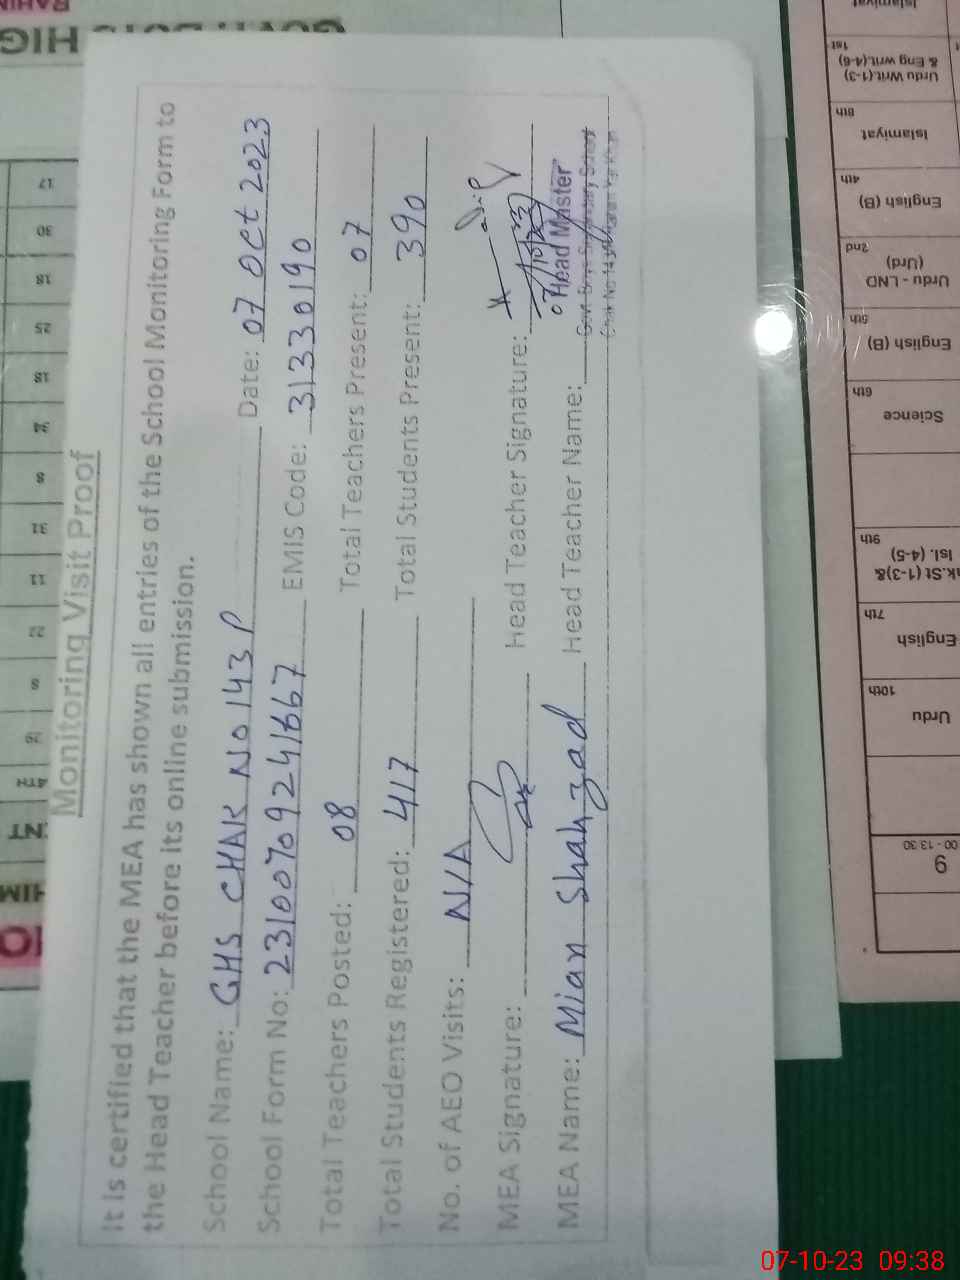 Monitoring Visit Proof
It is certified that the MEA has shown all entries of the School Monitoring Form to
the Head Teacher before its online submission.
School Name: GHS CHAK NO 143 P Date: 07 Oct 2023
School Form No: 23100709241667 EMIS Code: 31330190
Total Teachers Posted: 08 Total Teachers Present: 07
Total Students Registered: 417 Total Students Present: 390
No. of AEO Visits: N/A
MEA Signature: Head Teacher Signature:
MEA Name: Mian Shahzad Head Teacher Name:
Head Master
17
30
18
25
18
34
8
31
11
22
8
26
4TH
Islamiyat
1st
Urdu Writ.(1-3)
& Eng Writ.(4-6)
8th
Islamiyat
4th
English (B)
2nd
Urdu - LND
(Urd)
5th
English (B)
6th
Science
9th
Isl. (4-5)
7th
English
10th
Urdu
9
07-10-23 09:38